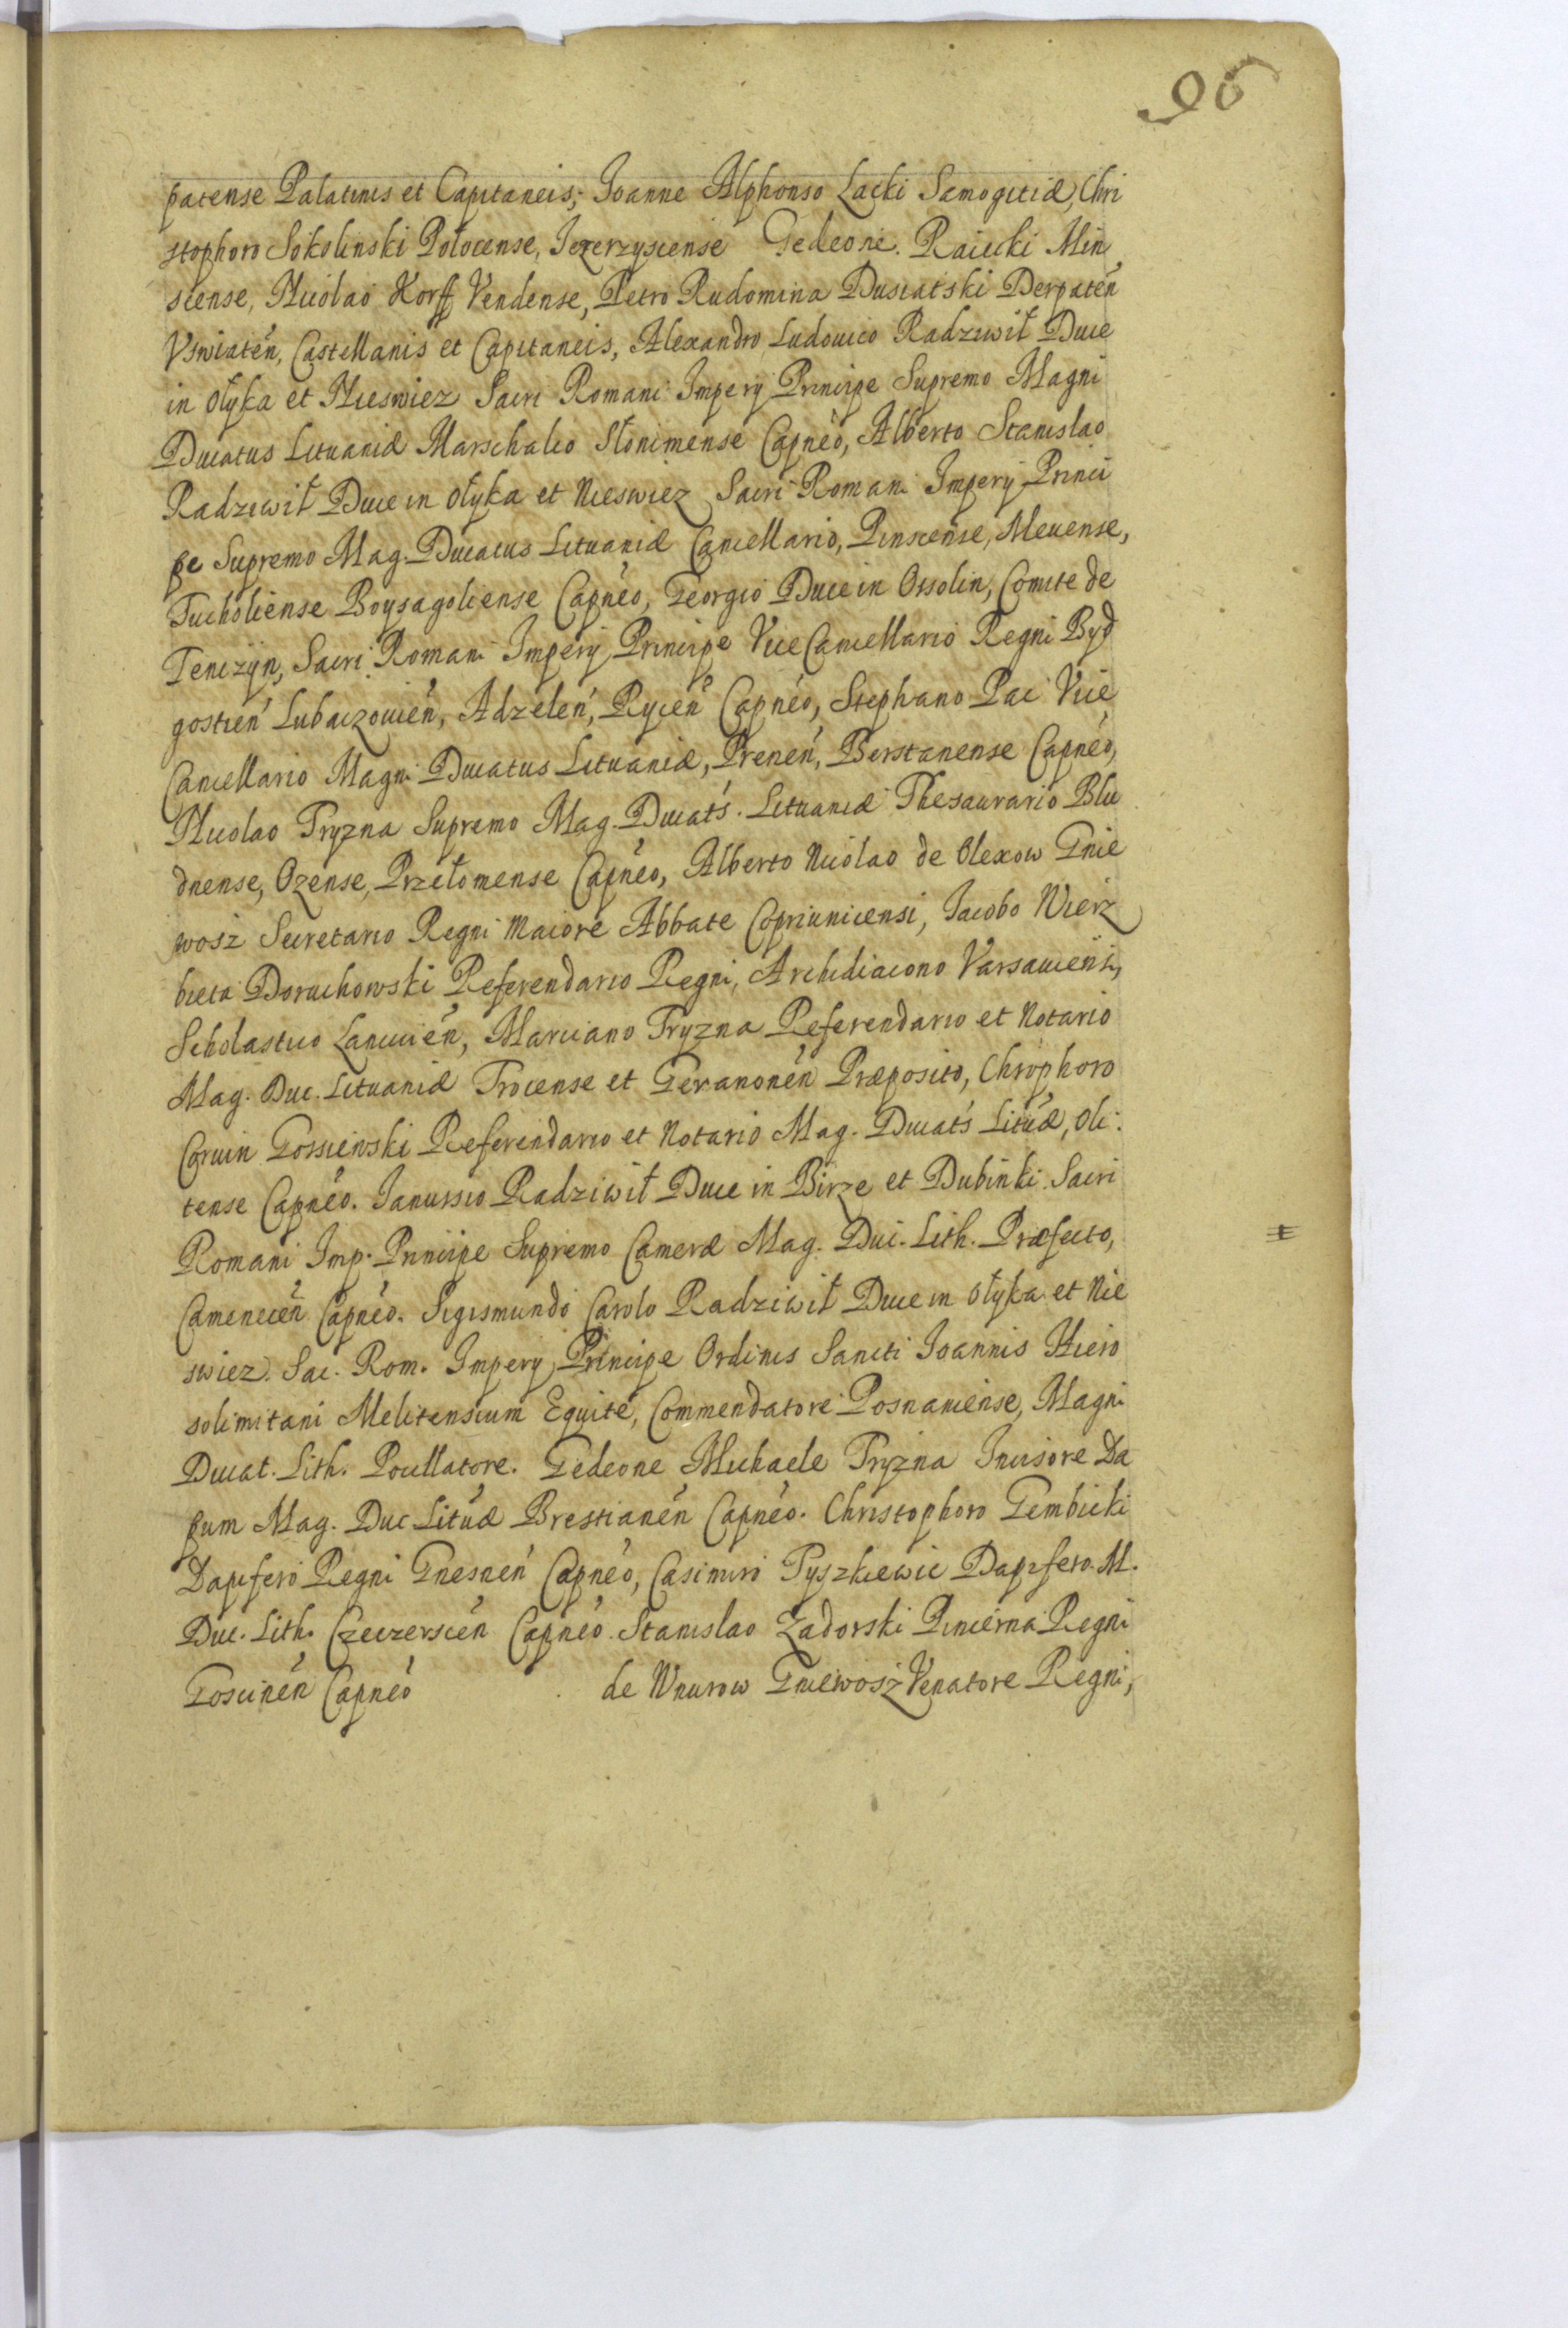 96
patense Palatinis et Capitaneis; Joanne Alphonso Lacki Samogitiæ, Chri
stophoro Sokolinski Połocense, Jezerzyscense Gedeone. Raiecki Min
scense, Nicolao Korff Vendense, Petro Rudomina Dusiatski Derpateń
Vswiateń, Castellanis et Capitaneis, Alexandro Ludouico Radziwił Duce
in Ołyka et Nieswiez Sacri Romani Impery Principe Supremo Magni
Ducatus Lituaniæ Marschalco Słonimense Capnéo, Alberto Stanislao
Radziwił Duce in Ołyka et Nieswiez Sacri Romani Impery Princi
pe Supremo Mag. Ducatus Lituaniæ Cancellario, Pinscense, Meuense,
Tucholiense Boysagoliense Capnéo, Georgio Duce in Ossolin, Comite de
Tenczyn, Sacri Romani Impery Principe ViceCancellario Regni Byd
gostień Lubaczouień, Adzeleń, Rycień Capnéo, Stephano Pac Vice
Cancellario Magni Ducatus Lituaniæ, Preneń, Berstanense Capnéo,
Nicolao Tryzna Supremo Mag. Ducats. Lituaniæ Thesaurario Blu
dnense, Ozense, Przełomense Capnéo, Alberto Nicolao de Olexow Gnie
wosz Secretario Regni Maiore Abbate Copriunicensi, Jacobo Wierz
bieta Doruchowski Referendario Regni, Archidiacono Varsauieńsi,
Scholastico Lancicień, Marciano Tryzna Referendario et Notario
Mag. Duc. Lituaniæ Trocense et Geranoneń Præposito, Chrophoro
Coruin Gossiewski Referendario et Notario Mag. Ducats Lituæ, Oli:
tense Capnéo. Janussio Radziwił Duce in Birze et Dubinki Sacri
Romani Imp. Principe Supremo Cameræ Mag. Duc. Lith. Præfecto,
Camenecéń Capnéo. Sigismundo Carolo Radziwił Duce in Ołyka et Nie
swiez. Sac. Rom. Impery Principe Ordinis Sancti Joannis Hiero
solimitani Melitensium Equite, Commendatore Posnaniense, Magni
Ducat. Lith. Pocillatore. Gedeone Michaele Tryzna Incisore Da
pum Mag. Duc Lituæ Brestianeń Capnéo. Christophoro Gembicki
Dapifero Regni Gnesneń Capnéo, Casimiro Tyszkiewic Dapifero M.
Duc. Lith. Czeczerscień Capnéo. Stanislao Zadorski Pincerna Regni
Goscineń Capnéo de Wnurow Gniewosz Venatore Regni,